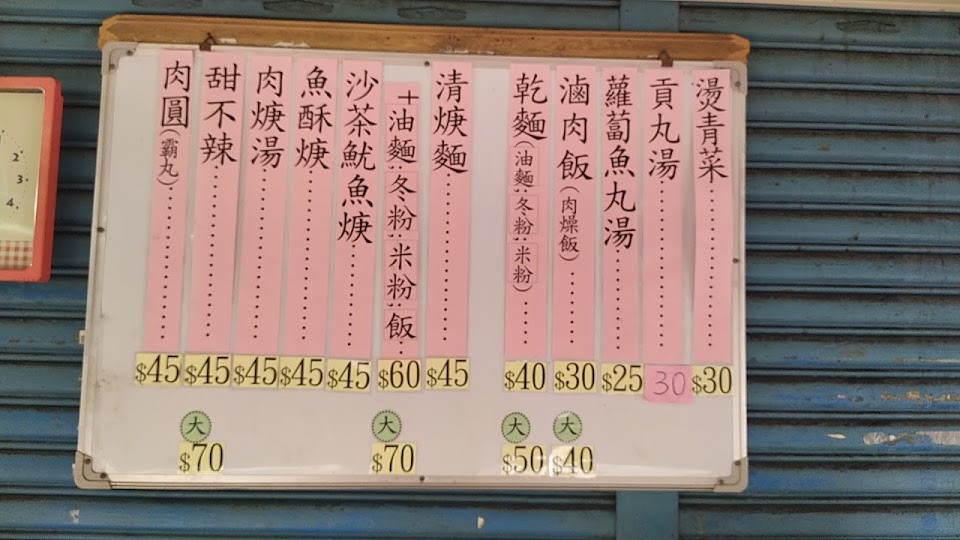 燙青菜 $30
貢丸湯 30
蘿蔔魚丸湯 $25
滷肉飯(肉燥飯) $30 大 $40
乾麵(油麵;冬粉;米粉) $40 大 $50
清焿麵 $45
+油麵;冬粉;米粉;飯 $60 大 $70
沙茶魷魚焿 $45
魚酥焿 $45
肉焿湯 $45
甜不辣 $45 大 $70
肉圓(霸丸) $45
2
3
4